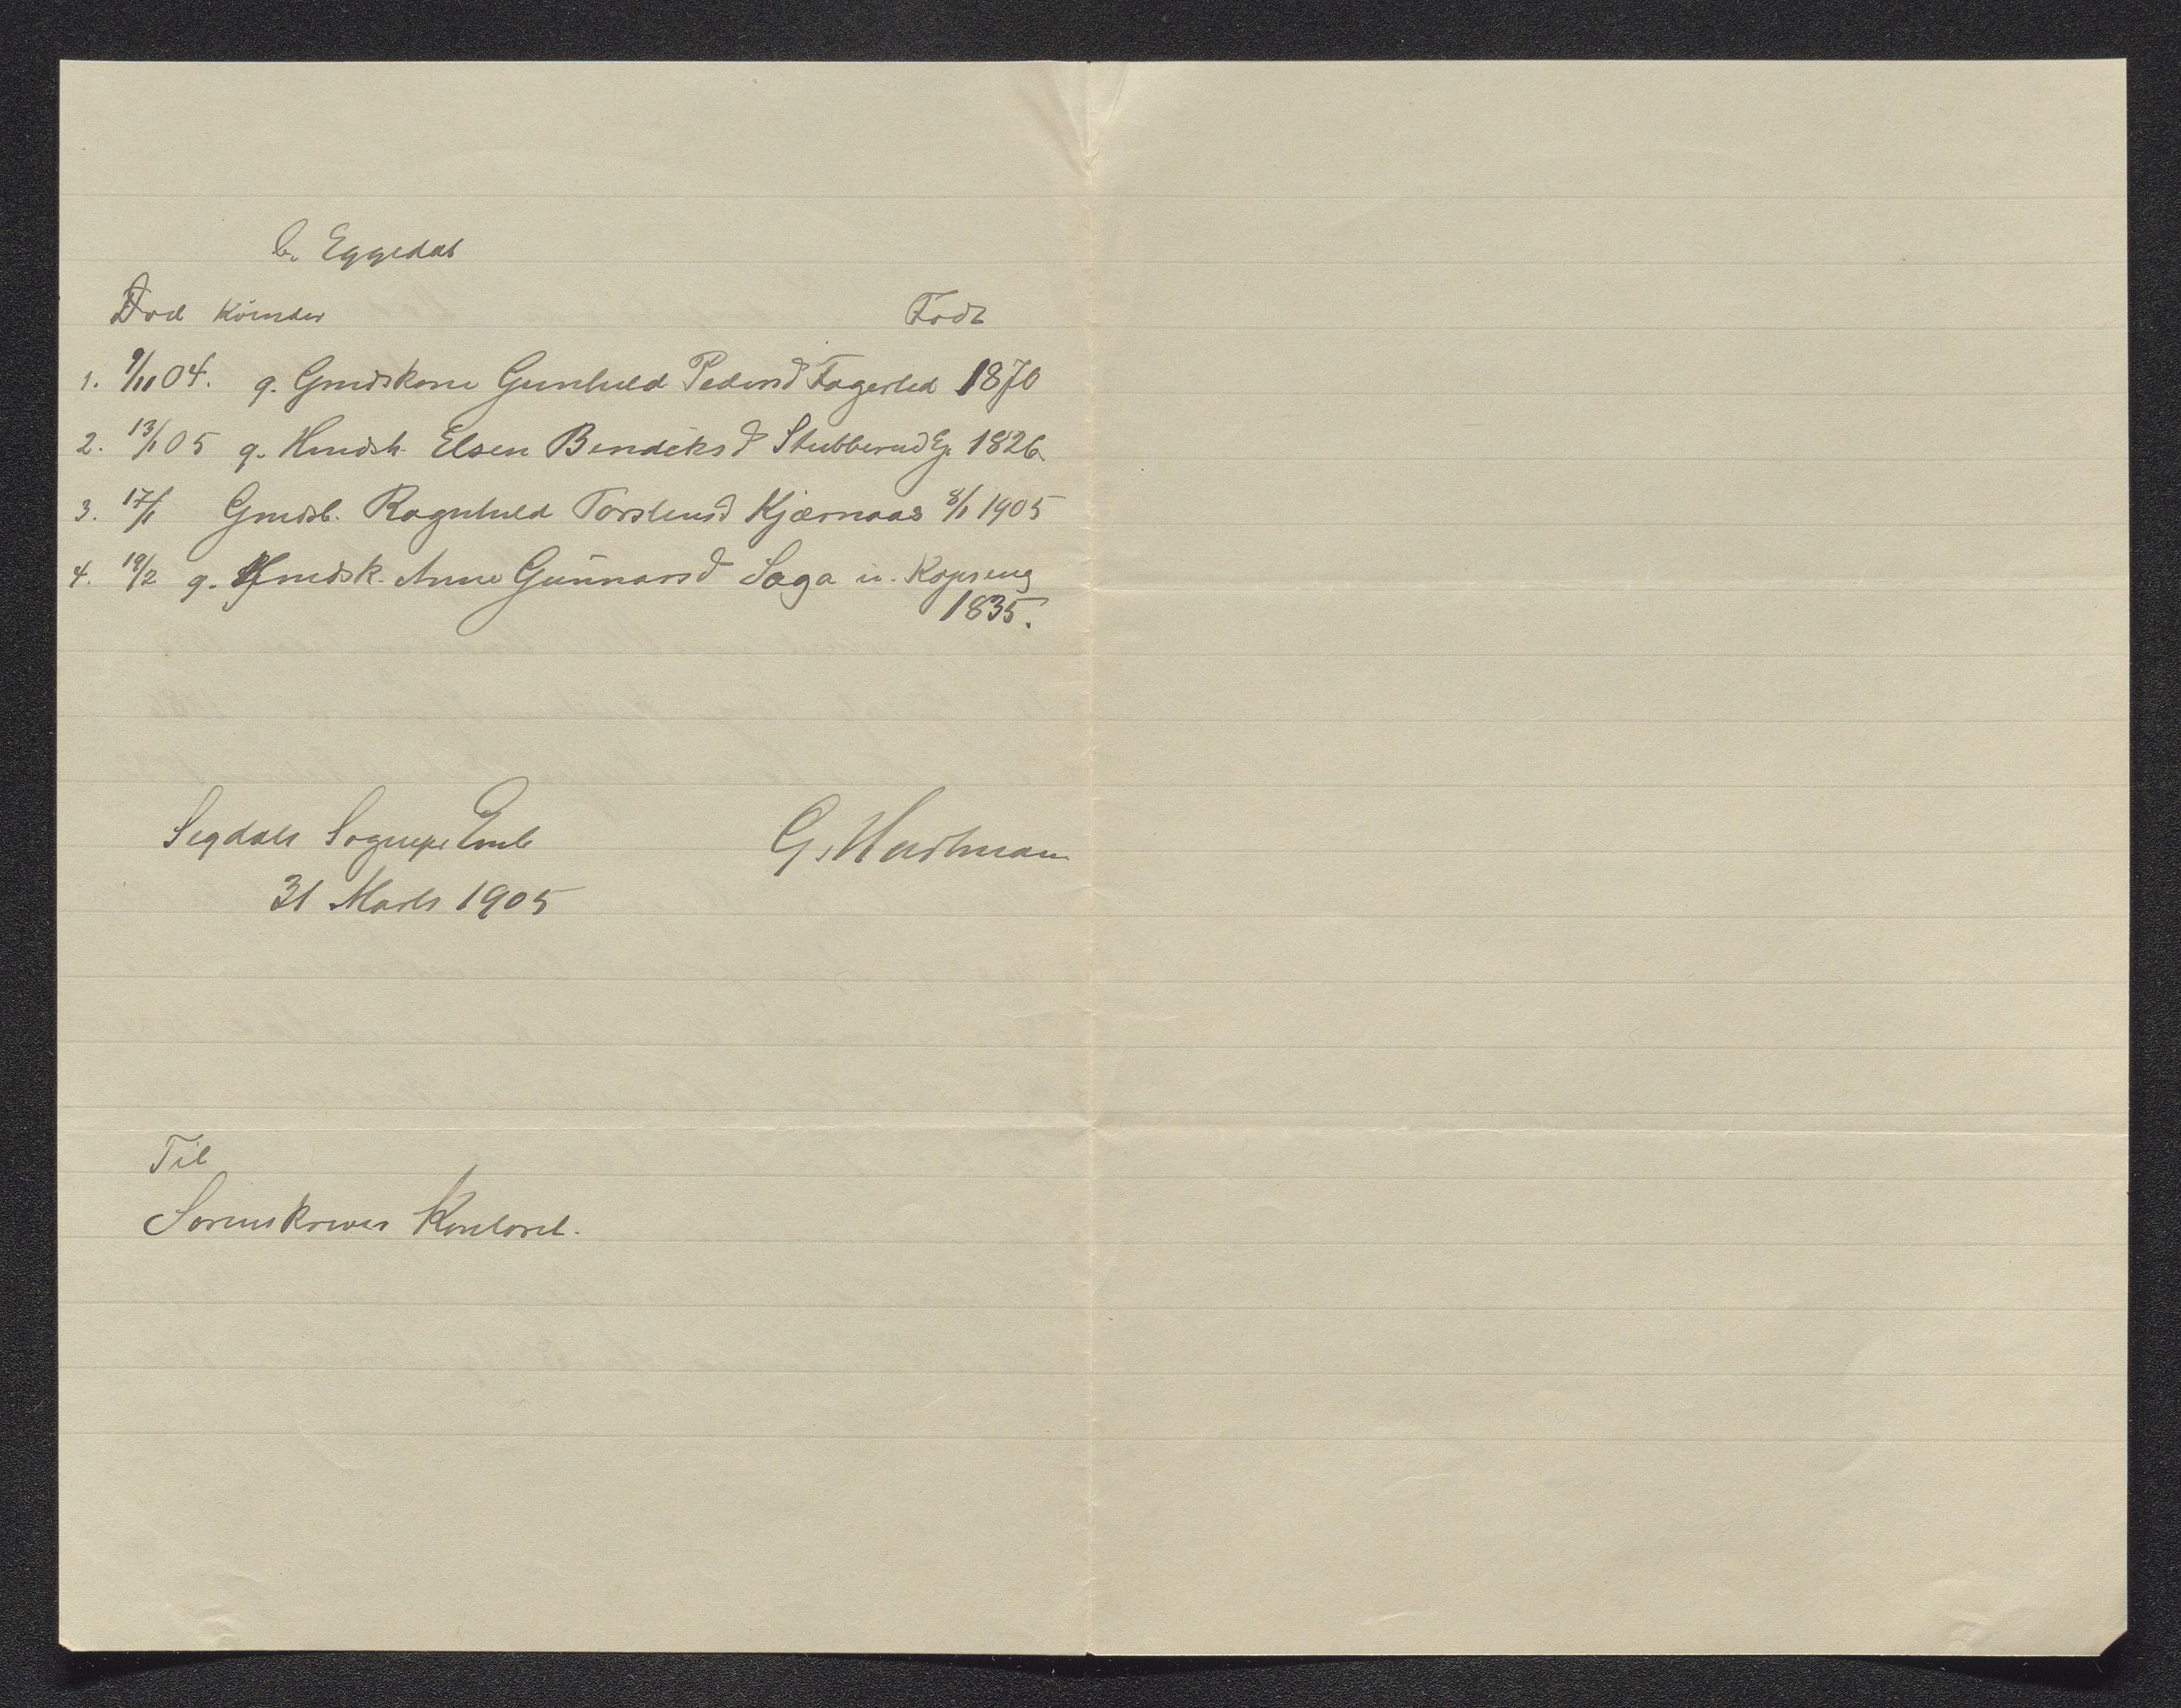 b. Eggedal
Død Kvinder Født
1. 9/11 04. g. Gmdskone Gunhild Pedersd Fagerlid 1870
2. 13/1 05 g. Kmdsk. Elsen Bendiksd Stubberud Eg. 1826
3. 17/1 Gmdsb. Ragnhild Torstensd Kjærnaas 8/1 1905
4. 19/2 g. Hmdsk. Anne Gunnarsd Saga u. Kopseng
1835.
Sigdals Sognepr. Emb G. Hartmann
31 Marts 1905
Til
Sorenskriver Kontoret.